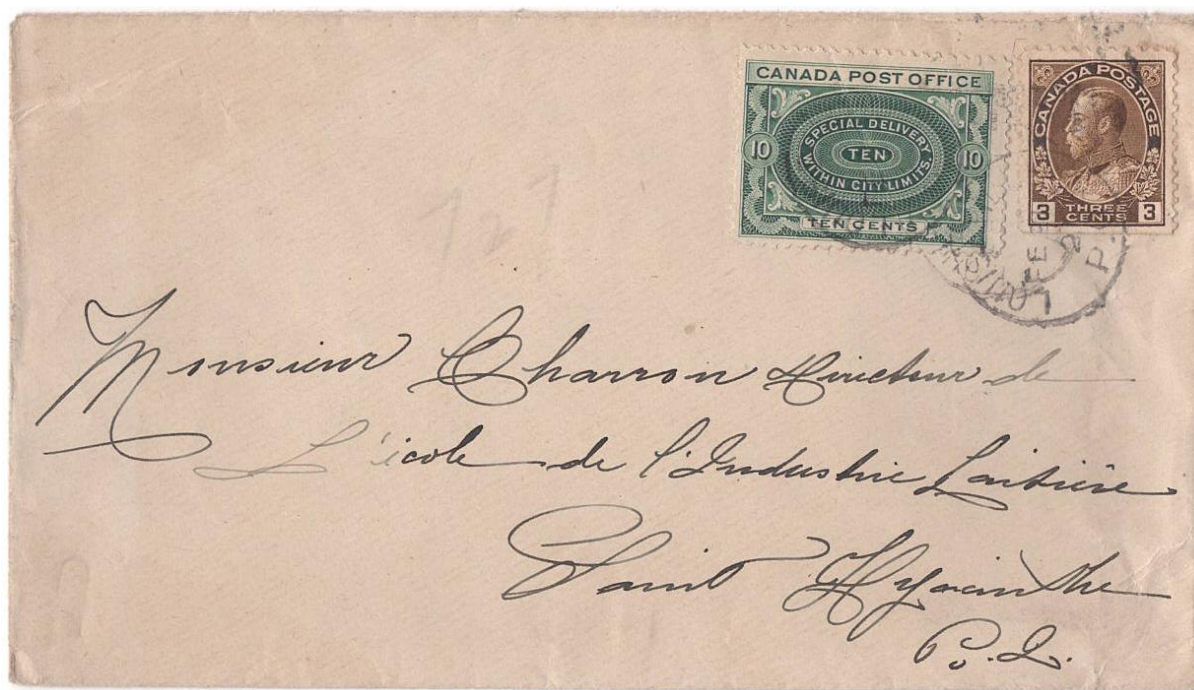 CANADA POST OFFICE
SPECIAL DELIVERY
10 TEN 10
WITHIN CITY LIMITS.
TEN CENTS
CANADA POSTAGE
3 THREE CENTS 3
127
Monsieur Charron Directeur de
L'école de l'Industrie Laitière
Saint Hyacinthe
P.Q.